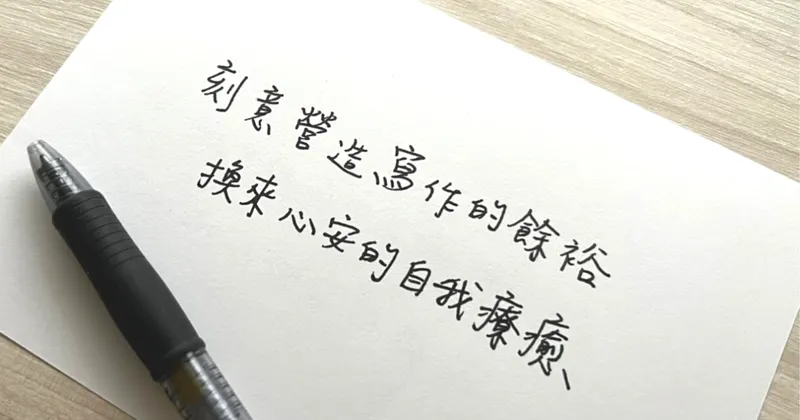 刻意營造寫作的餘裕
換來心安的自我療癒